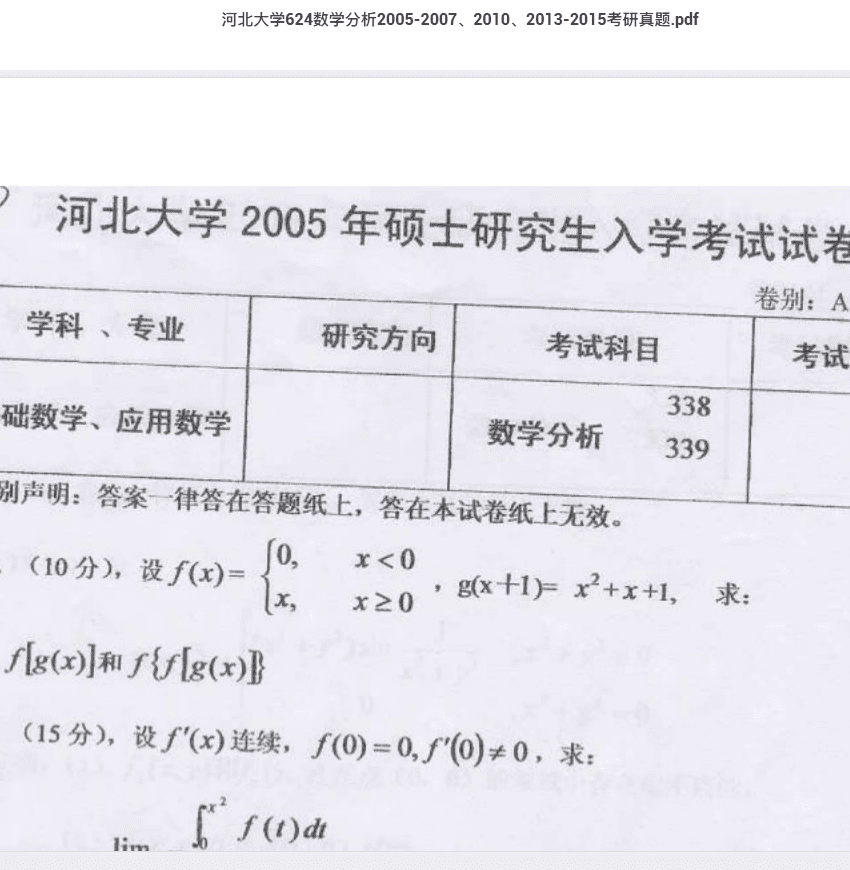 河北大学624数学分析2005-2007、2010、2013-2015考研真题.pdf
河北大学 2005 年硕士研究生入学考试试卷
卷别：A
学科 、专业 研究方向 考试科目 考试
础数学、应用数学 数学分析 338 339
别声明：答案一律答在答题纸上，答在本试卷纸上无效。
（10 分），设 f(x)= {0, x<0 x, x≥0 , g(x+1)= x²+x+1, 求：
f[g(x)]和 f{f[g(x)]}
（15 分），设 f′(x) 连续， f(0)=0, f′(0)≠0 ，求：
lim ∫₀^{x²} f(t)dt